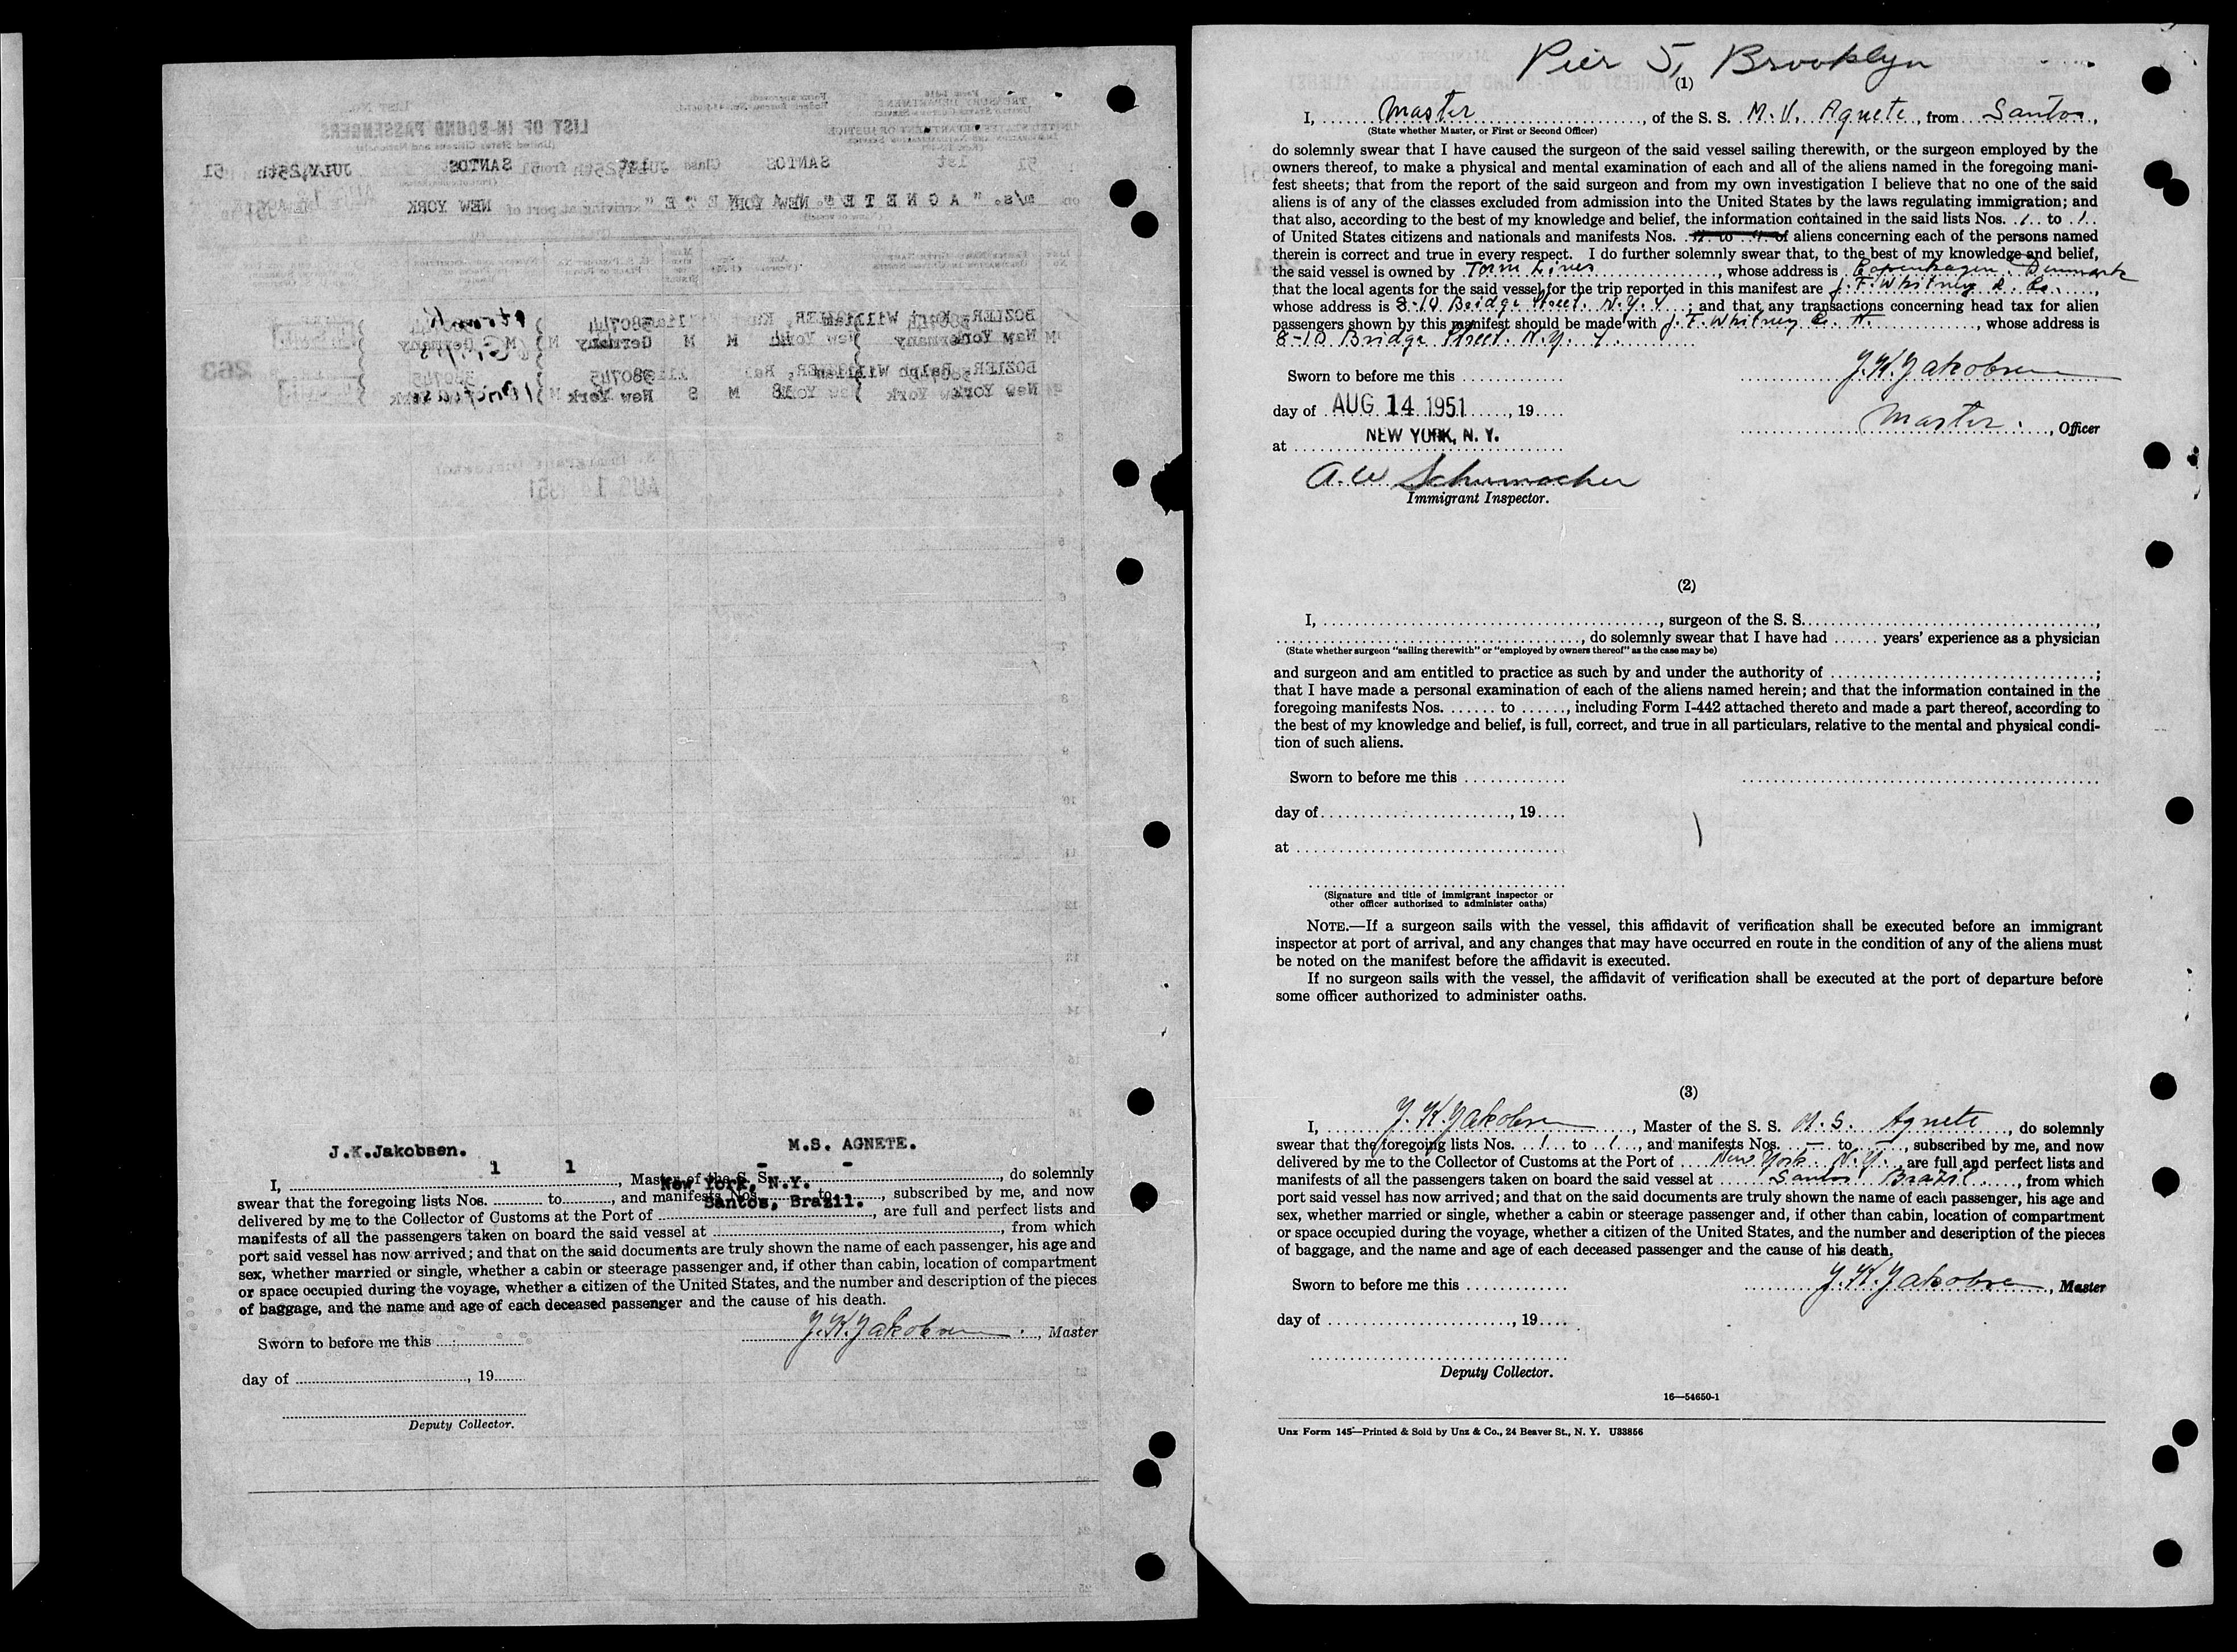 LIST OF IN-BOUND PASSENGERS
(United States Citizens and Nationals)
TREASURY DEPARTMENT
UNITED STATES CUSTOMS SERVICE
UNITED STATES DEPARTMENT OF JUSTICE
Class 1st from SANTOS JULY,25th 51
on m/s. " A G N E T E " arriving at port of NEW YORK
BOZIER, Kurt William
New York
Germany
380744
BOZIER, Ralph William
New York
New York
380745
263
J.K.Jakobsen. M.S. AGNETE.
1 1 - -
I, , Master of the S. S. , do solemnly
New York, N.Y.
swear that the foregoing lists Nos. to , and manifests Nos. to , subscribed by me, and now
Santos, Brazil.
delivered by me to the Collector of Customs at the Port of , are full and perfect lists and
manifests of all the passengers taken on board the said vessel at , from which
port said vessel has now arrived; and that on the said documents are truly shown the name of each passenger, his age and
sex, whether married or single, whether a cabin or steerage passenger and, if other than cabin, location of compartment
or space occupied during the voyage, whether a citizen of the United States, and the number and description of the pieces
of baggage, and the name and age of each deceased passenger and the cause of his death.
J.K.Jakobsen , Master
Sworn to before me this
day of , 19
Deputy Collector.
Pier 5, Brooklyn
(1)
I, Master , of the S. S. M.V. Agnete, from Santos,
(State whether Master, or First or Second Officer)
do solemnly swear that I have caused the surgeon of the said vessel sailing therewith, or the surgeon employed by the
owners thereof, to make a physical and mental examination of each and all of the aliens named in the foregoing mani-
fest sheets; that from the report of the said surgeon and from my own investigation I believe that no one of the said
aliens is of any of the classes excluded from admission into the United States by the laws regulating immigration; and
that also, according to the best of my knowledge and belief, the information contained in the said lists Nos. 1 to 1
of United States citizens and nationals and manifests Nos. to of aliens concerning each of the persons named
therein is correct and true in every respect. I do further solemnly swear that, to the best of my knowledge and belief,
the said vessel is owned by Torm Lines , whose address is Copenhagen, Denmark
that the local agents for the said vessel for the trip reported in this manifest are J. F. Whitney & Co. ,
whose address is 8-10 Bridge Street. N.Y. 4 ; and that any transactions concerning head tax for alien
passengers shown by this manifest should be made with J. F. Whitney & , whose address is
8-10 Bridge Street. N.Y. 4.
J.K.Jakobsen
Sworn to before me this
day of AUG 14 1951, 19
Master. , Officer
at NEW YORK, N. Y.
A.W. Schumacher
Immigrant Inspector.
(2)
I, , surgeon of the S. S. ,
, do solemnly swear that I have had years' experience as a physician
(State whether surgeon "sailing therewith" or "employed by owners thereof" as the case may be)
and surgeon and am entitled to practice as such by and under the authority of ;
that I have made a personal examination of each of the aliens named herein; and that the information contained in the
foregoing manifests Nos. to , including Form I-442 attached thereto and made a part thereof, according to
the best of my knowledge and belief, is full, correct, and true in all particulars, relative to the mental and physical condi-
tion of such aliens.
Sworn to before me this
day of , 19
at
(Signature and title of immigrant inspector or
other officer authorized to administer oaths)
NOTE.—If a surgeon sails with the vessel, this affidavit of verification shall be executed before an immigrant
inspector at port of arrival, and any changes that may have occurred en route in the condition of any of the aliens must
be noted on the manifest before the affidavit is executed.
If no surgeon sails with the vessel, the affidavit of verification shall be executed at the port of departure before
some officer authorized to administer oaths.
(3)
I, J.K.Jakobsen , Master of the S. S. M.S. Agnete , do solemnly
swear that the foregoing lists Nos. 1 to 1 , and manifests Nos. — to — , subscribed by me, and now
delivered by me to the Collector of Customs at the Port of New York N.Y. are full and perfect lists and
manifests of all the passengers taken on board the said vessel at Santos Brazil , from which
port said vessel has now arrived; and that on the said documents are truly shown the name of each passenger, his age and
sex, whether married or single, whether a cabin or steerage passenger and, if other than cabin, location of compartment
or space occupied during the voyage, whether a citizen of the United States, and the number and description of the pieces
of baggage, and the name and age of each deceased passenger and the cause of his death.
Sworn to before me this
J.K.Jakobsen , Master
day of , 19
Deputy Collector.
16—54650-1
Unz Form 145—Printed & Sold by Unz & Co., 24 Beaver St., N. Y. U33856